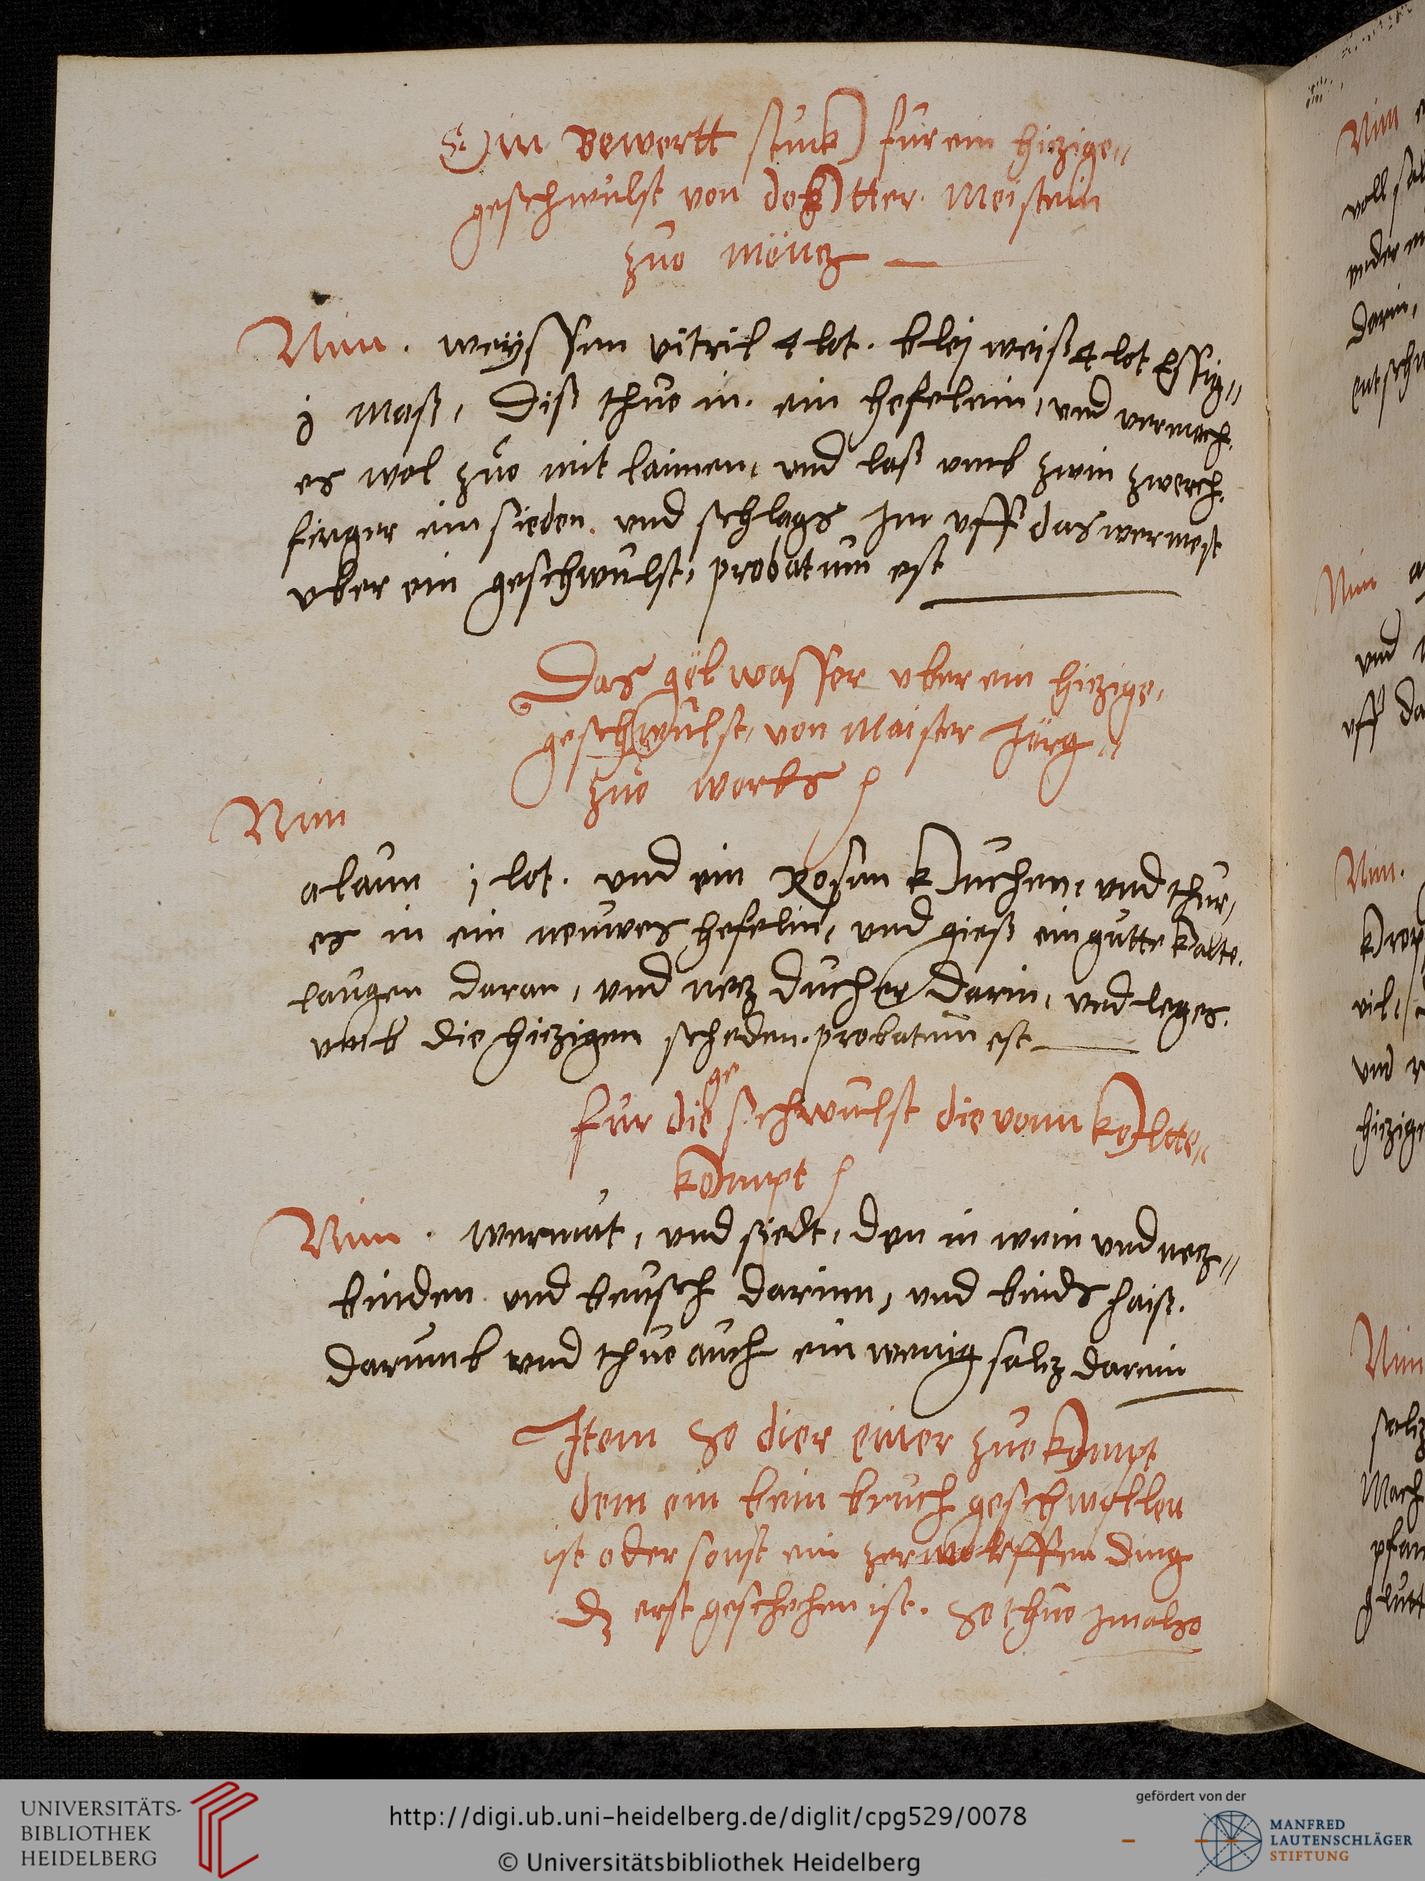 Ein Bewertt stuck fur ein hiczige„
geschwulst von dokter. Meistein
zuo möncz
Nim. weyssen vitril 4 lot. bleiweiß 4 lot Essig„
j maß, diß thuo in. ein hefelein, und vermach.
es wol zuo mit laimen, und laß umb zwin zwerch.
finger ein sieden. und schlags Im uff das wermest
uber ein geschwulst, probatum est
Das gel wasser uber ein hiczige,
geschwulst, von Maister Jörg„
zuo worbs
Nim
alaun j lot. und ein Rosen kuchen, und thuo,
es in ein neuwes hefelin, und gieß ein gutte kalte.
laugen daran, und necz ducher darin, und leges.
umb die hiczigen scheden. probatum est
fur die geschwulst die vonn kelte„
kompt
Nim. wermut, und siedt, den in wein und necz„
binden und beusch darinn, und binds haiß.
darumb und thuo auch ein wenig salcz darein
Item So dier einer zuo kompt
dem ein bein bruch geschwollen
ist oder sonst ein zerworffen ding
dz erst geschehen ist. So thuo Im also
Nim
Nim
Nim.
Nim
UNIVERSITÄTS-
BIBLIOTHEK
HEIDELBERG
http://digi.ub.uni-heidelberg.de/diglit/cpg529/0078
© Universitätsbibliothek Heidelberg
gefördert von der
MANFRED
LAUTENSCHLÄGER
STIFTUNG